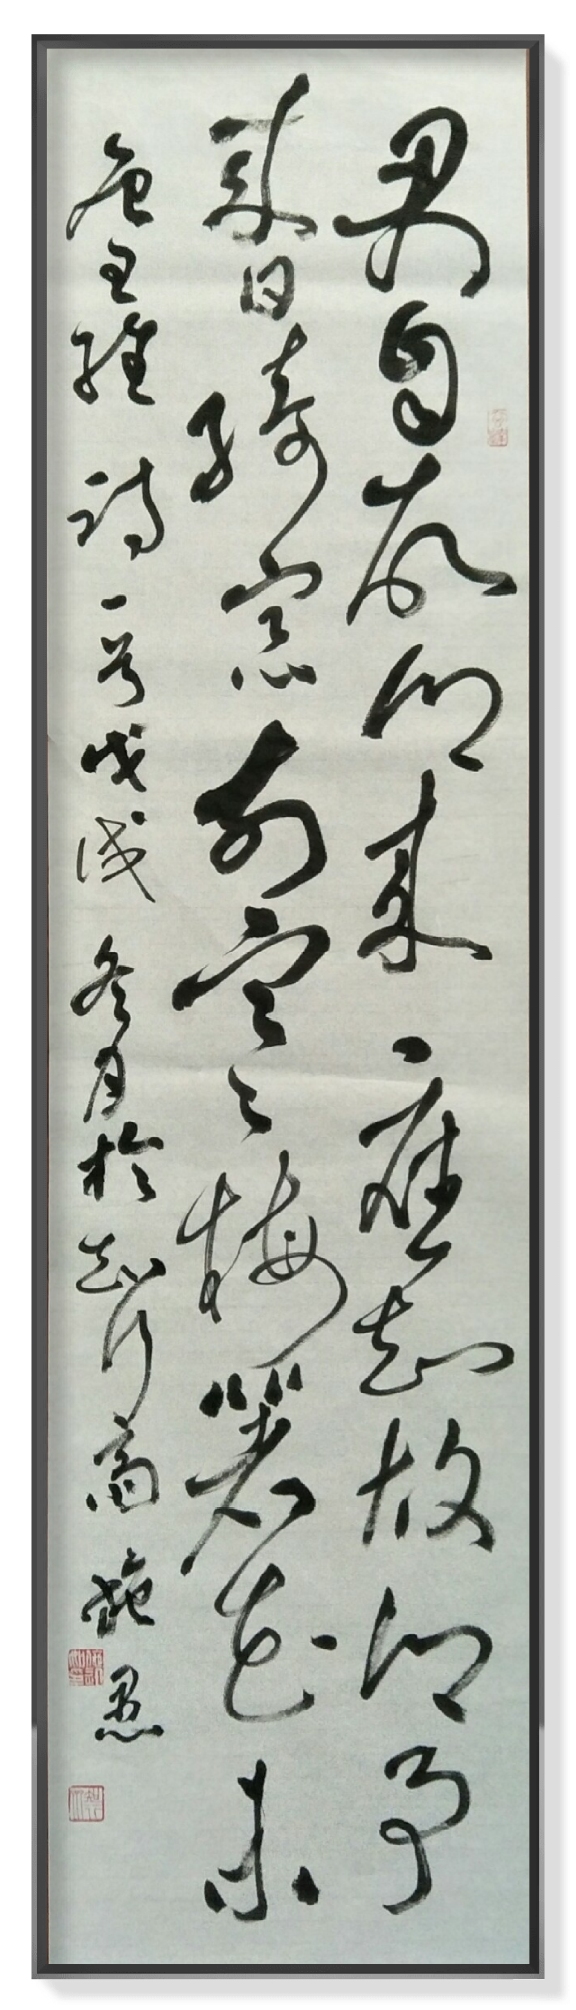 君自故鄉來應知故鄉事
來日綺窗前寒梅著花未
唐王維詩一首戊戌冬月於知行齋